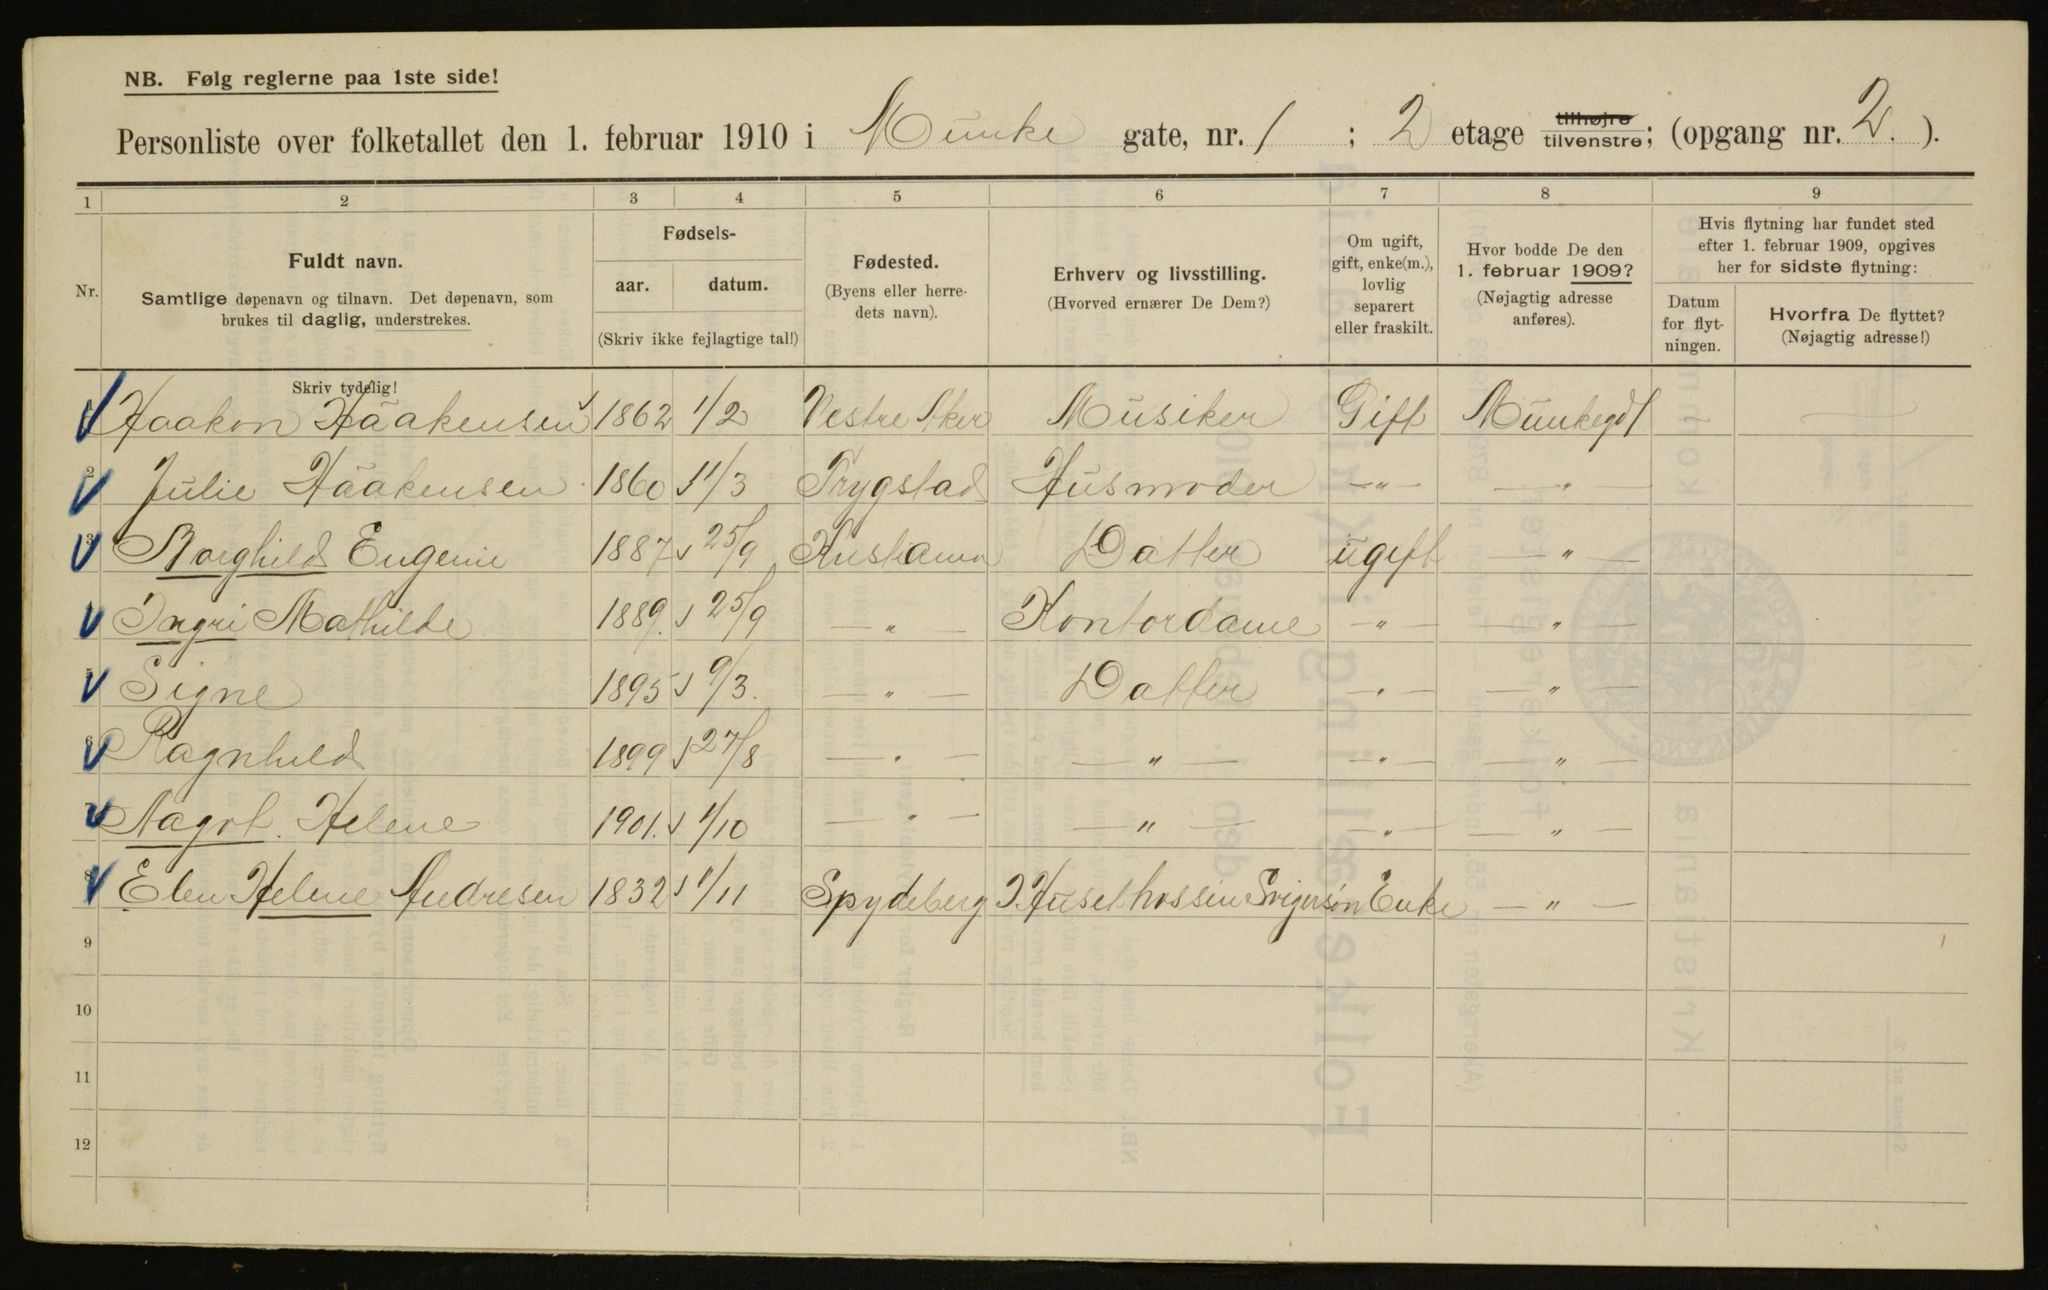 NB. Følg reglerne paa 1ste side!
Personliste over folketallet den 1. februar 1910 i Munke gate, nr. 1 ; 2 etage tilhøjre tilvenstre; (opgang nr. 2. ).
1 2 3 4 5 6 7 8 9
Nr.
Fuldt navn.
Samtlige døpenavn og tilnavn. Det døpenavn, som
brukes til daglig, understrekes.
Fødsels-
aar. datum.
(Skriv ikke fejlagtige tal!)
Fødested.
(Byens eller herre-
dets navn).
Erhverv og livsstilling.
(Hvorved ernærer De Dem?)
Om ugift,
gift, enke(m.),
lovlig
separert
eller fraskilt.
Hvor bodde De den
1. februar 1909?
(Nøjagtig adresse
anføres).
Hvis flytning har fundet sted
efter 1. februar 1909, opgives
her for sidste flytning:
Datum
for flyt-
ningen.
Hvorfra De flyttet?
(Nøjagtig adresse!)
Skriv tydelig!
Haakon Haakensen 1862 1/2 Vestre Aker Musiker Gift Munkegd 1 —
2 Julie Haakensen 1860 11/3 Trygstad Husmoder —"— —"—
3 Borghild Eugenie 1887 25/9 Kristiania Datter ugift —"—
Ingri Mathilde 1889. 25/9 —"— Kontordame —"— —"—
5 Signe 1895 9/3. —"— Datter —"— —"—
6 Ragnhild 1899 27/8 —"— —"— —"— —"—
7 Aagot. Helene 1901. 1/10 —"— —"— —"— —"—
8 Elen Helene Andresen 1832 1/11 Spydeberg I Huset hos sin Svigersøn Enke —"—
9
10
11
12